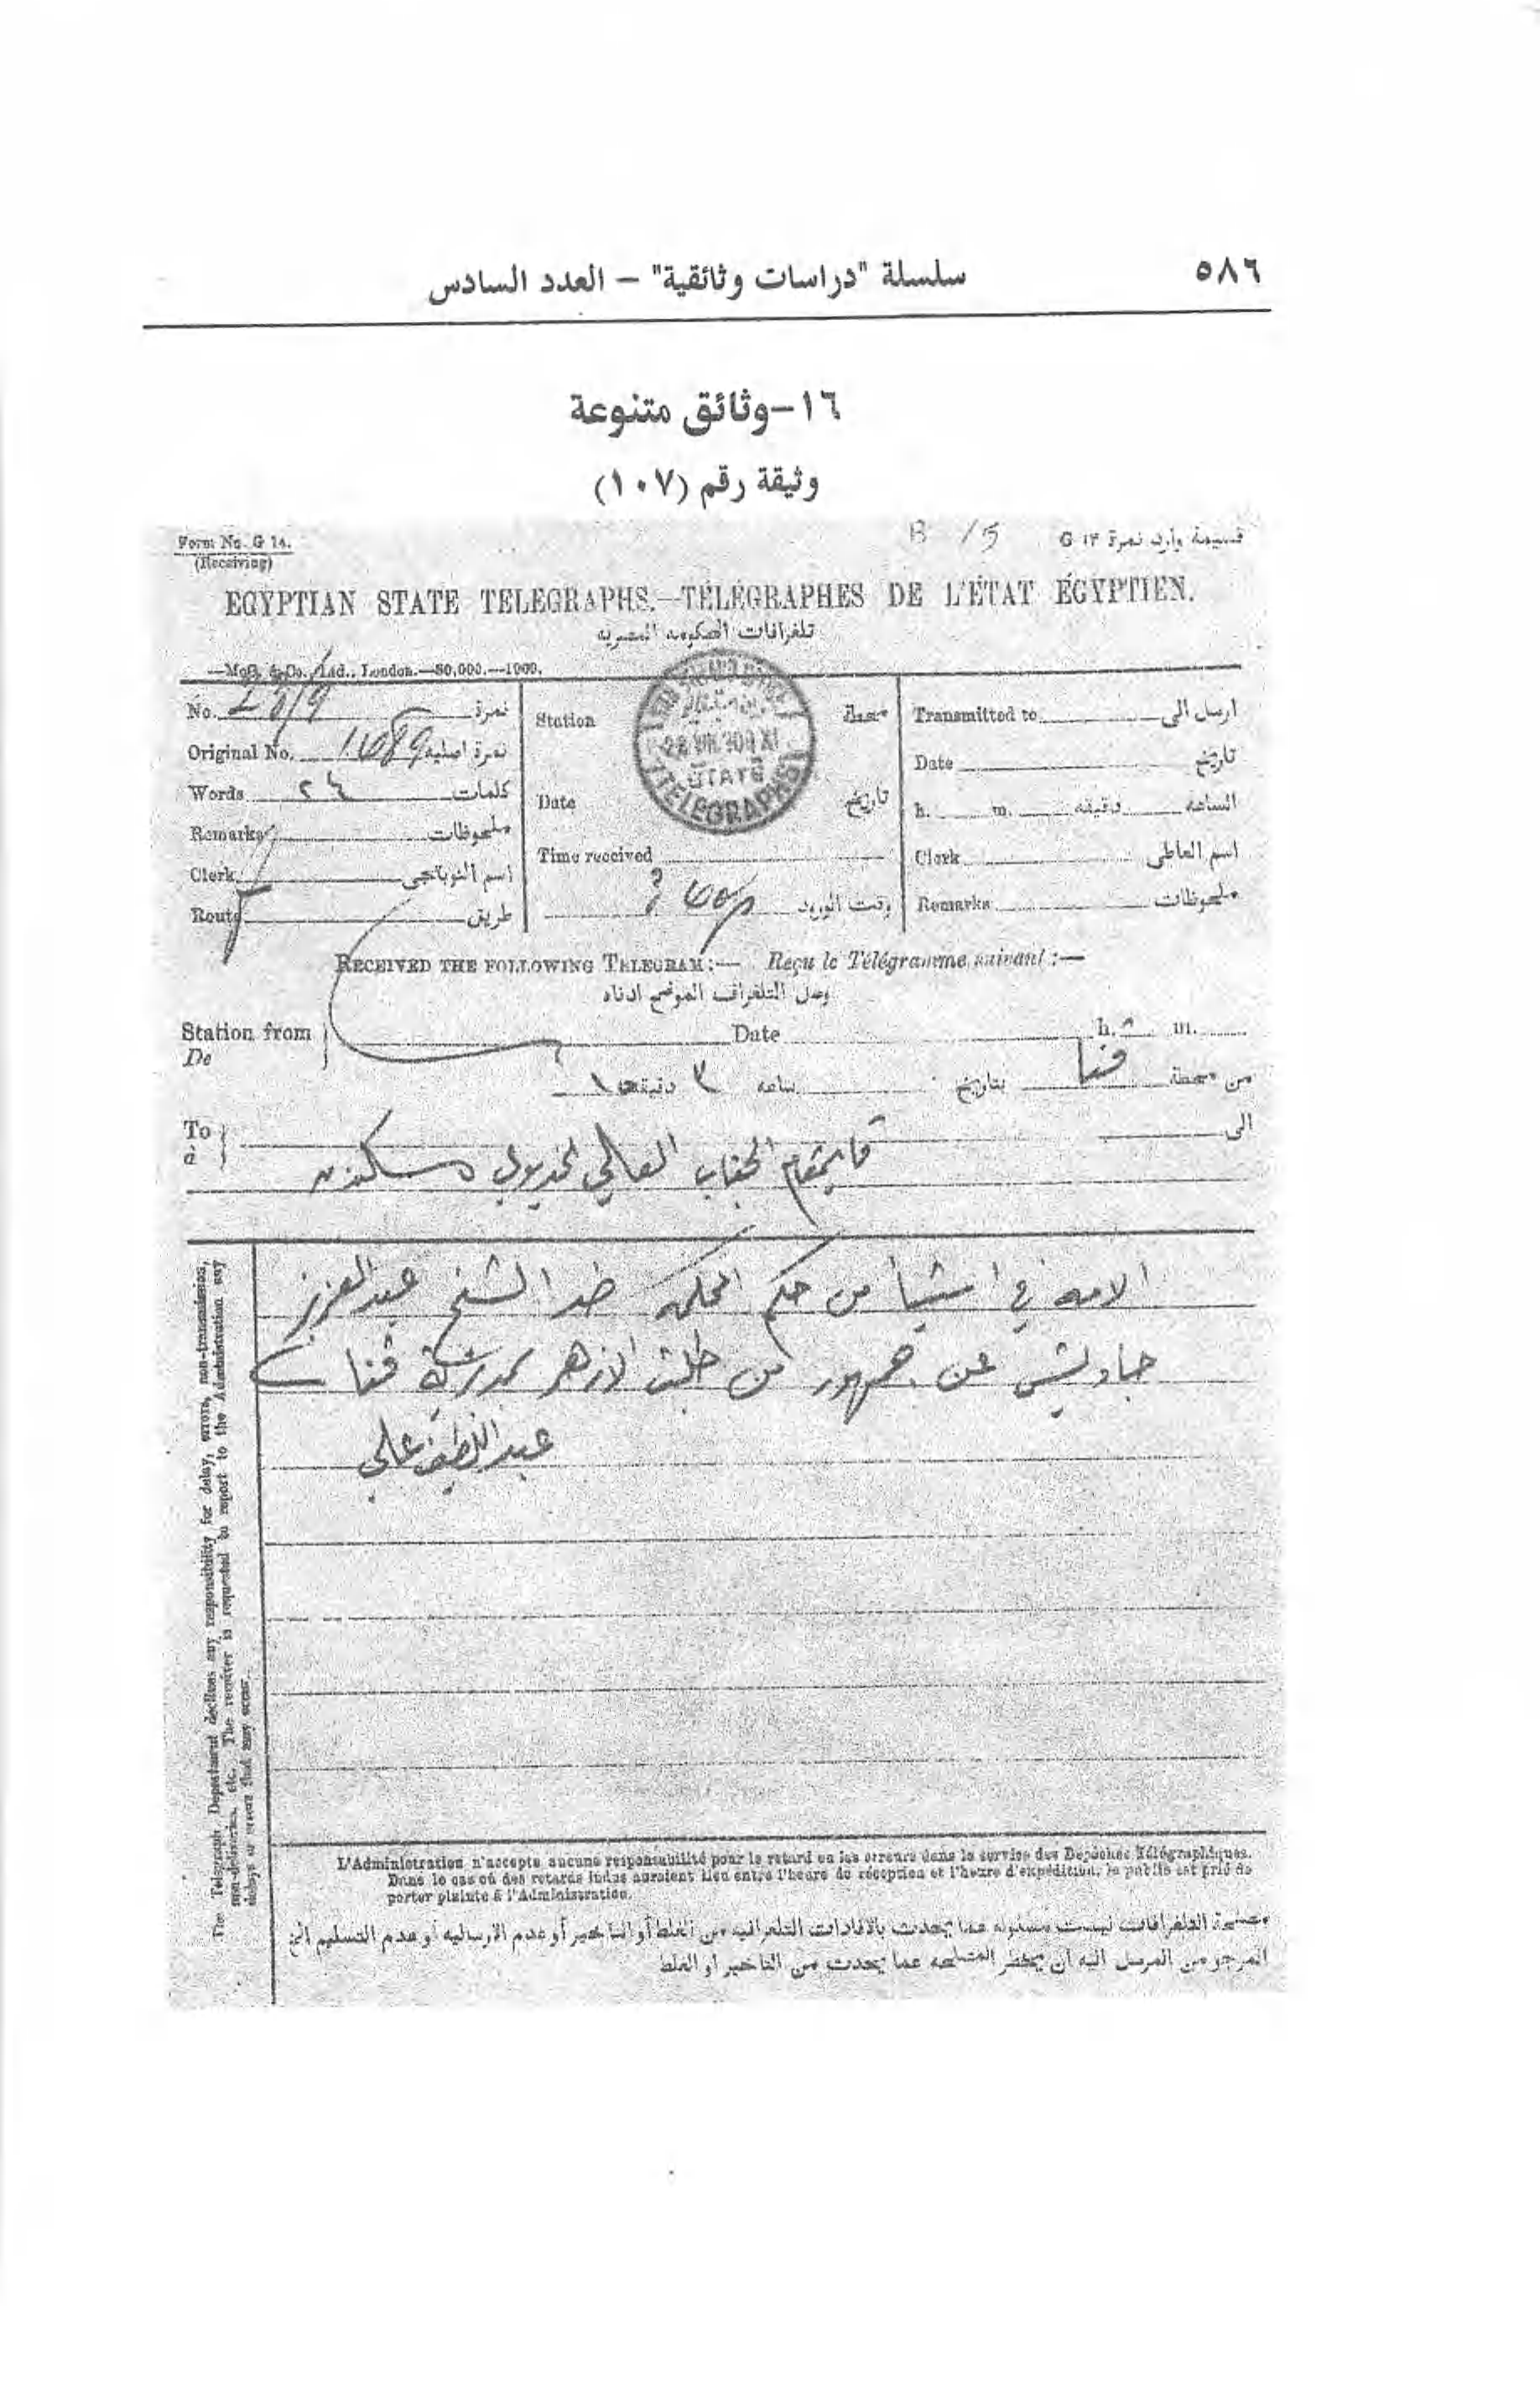 ٥٨٦
سلسلة "دراسات وثائقية" – العدد السادس
١٦-وثائق متنوعة
وثيقة رقم (١٠٧)
Form No. G 14.
(Receiving)
B 15
قسيمة وارد نمرة ١٤ G
EGYPTIAN STATE TELEGRAPHS.—TÉLÉGRAPHES DE L'ÉTAT ÉGYPTIEN.
تلغرافات الحكومه المصريه
London.—50,000.—1909.
No. نمرة
Original No. نمرة اصليه
Words ٢٤ كلمات
Remarks ملحوظات
Clerk اسم النوبتجى
Route طريق
Station محطة
STATE
TELEGRAPHS
Date تاريخ
Time received
وقت الورود
Transmitted to ارسل الى
Date تاريخ
h. m. دقيقه الساعه
Clerk اسم العاطى
Remarks ملحوظات
RECEIVED THE FOLLOWING TELEGRAM:— Reçu le Télégramme suivant:—
وصل التلغراف الموضح ادناه
Station from Date h. m.
De
من محطة قنا بتاريخ ساعه ٣ دقيقة
To الى
à
قايمقام الجناب العالي الخديوي
الامه في استيأ من حكم المحكمه ضد الشيخ عبد العزيز
جاويش عن جمهور من طلبة الازهر بمديرية قنا
عبد اللطيف علي
The Telegraph Department declines any responsibility for delay, errors, non-transmission,
non-deliveries, etc. The receiver is requested to report to the Administration any
delays or errors that may occur.
L'Administration n'accepte aucune responsabilité pour le retard ou les erreurs dans le service des Dépêches Télégraphiques.
Dans le cas où des retards indus auraient lieu entre l'heure de réception et l'heure d'expédition, le public est prié de
porter plainte à l'Administration.
مصلحة التلغرافات ليست مسئوله عما يحدث بالافادات التلغرافيه من الغلط أو التاخير أو عدم الارساليه أو عدم التسليم الخ
المرجو من المرسل اليه ان يخطر المصلحه عما يحدث من التاخير او الغلط